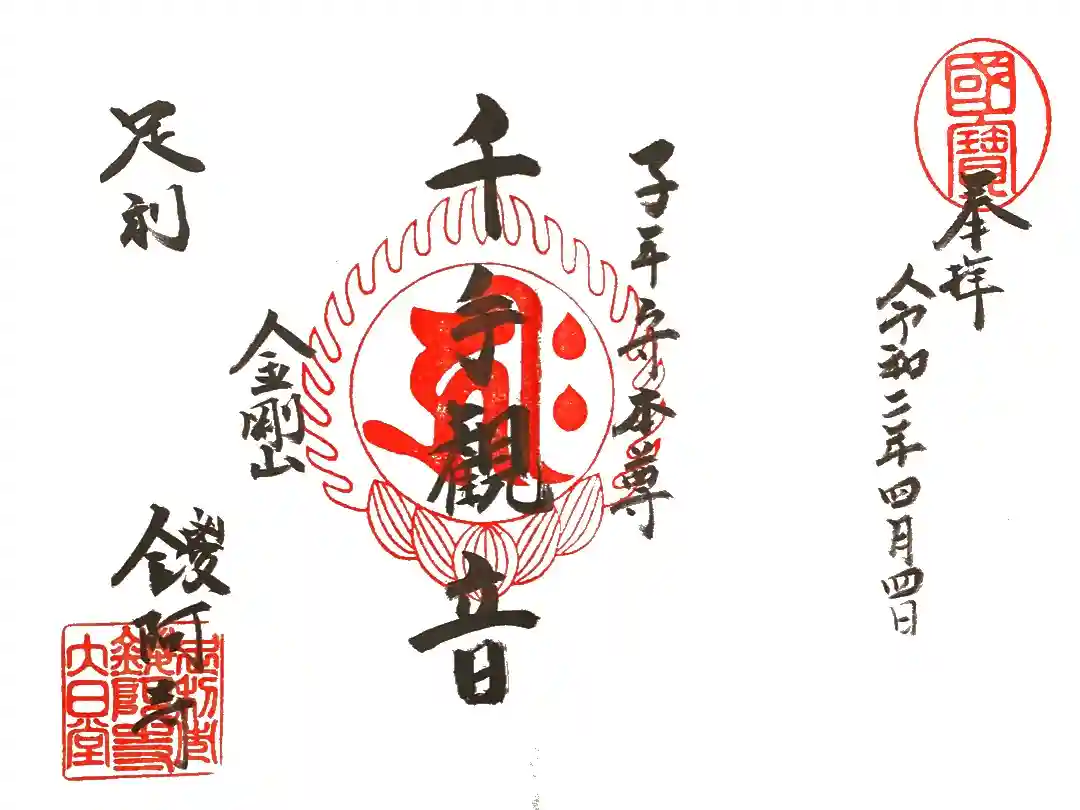 國寶
奉拝
令和二年四月四日
子年守本尊
千手観音
金剛山
足利
鑁阿寺
足利市
鑁阿寺
大日堂